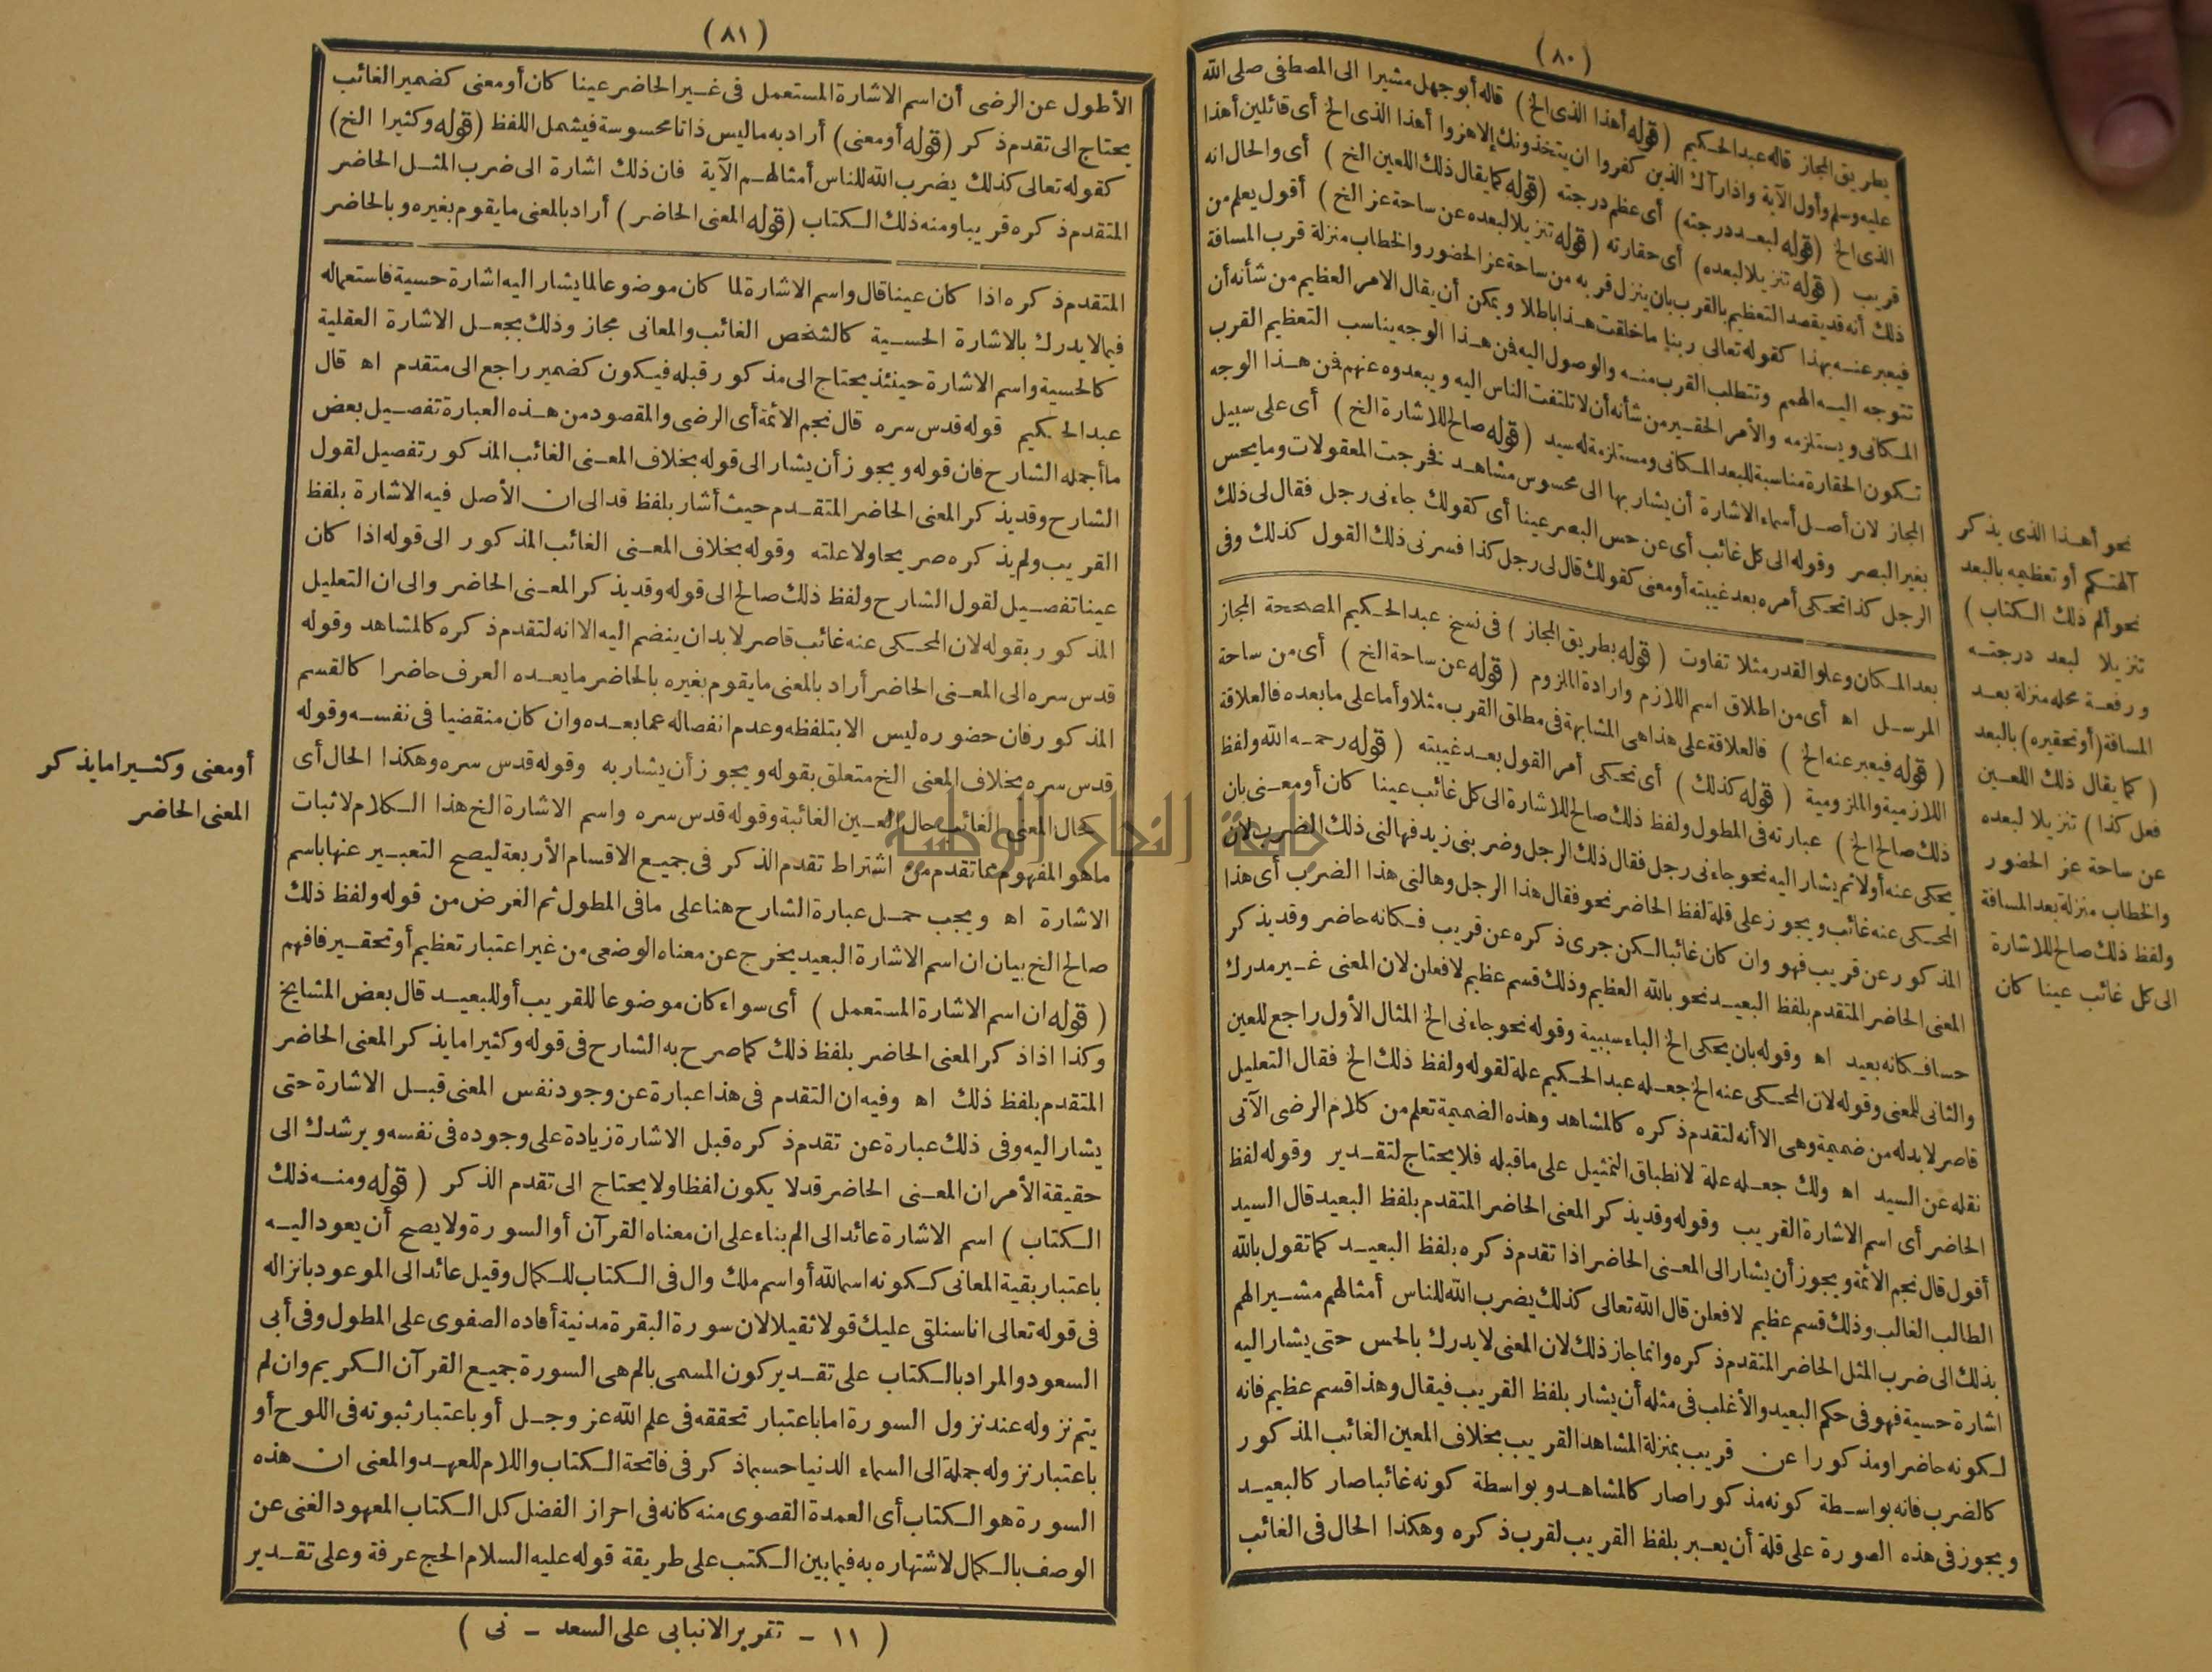 (٨٠)
بطريق المجاز قاله عبد الحكيم (قوله أهذا الذى الخ) قاله أبو جهل مشيرا الى المصطفى صلى الله
عليه وسلم وأول الآية واذا رآك الذين كفروا ان يتخذونك إلا هزوا أهذا الذى الخ أى قائلين أهذا
الذى الخ (قوله لبعد درجته) أى عظم درجته (قوله كما يقال ذلك اللعين الخ) أى والحال انه
قريب (قوله تنزيلا لبعده) أى حقارته (قوله تنزيلا لبعده عن ساحة عز الخ) أقول يعلم من
ذلك أنه قد يقصد التعظيم بالقرب بان ينزل قربه من ساحة عز الحضور والخطاب منزلة قرب المسافة
فيعبر عنه بهذا كقوله تعالى ربنا ما خلقت هذا باطلا ويمكن أن يقال الامر العظيم من شأنه أن
تتوجه اليه الهمم وتتطلب القرب منه والوصول اليه فمن هذا الوجه يناسب التعظيم القرب
المكانى ويستلزمه والأمر الحقير من شأنه أن لا تلتفت الناس اليه ويبعدوه عنهم فمن هذا الوجه
تكون الحقارة مناسبة للبعد المكانى ومستلزمة له سيد (قوله صالح للاشارة الخ) أى على سبيل
المجاز لان أصل أسماء الاشارة أن يشار بها الى محسوس مشاهد فخرجت المعقولات وما يحس
بغير البصر وقوله الى كل غائب أى عن حس البصر عينا أى كقولك جاءنى رجل فقال لى ذلك
الرجل كذا تحكى أمره بعد غيبته أو معنى كقولك قال لى رجل كذا فسرنى ذلك القول كذلك وفى
بعد المكان وعلو القدر مثلا تفاوت (قوله بطريق المجاز) فى نسخ عبد الحكيم المصححة المجاز
المرسل اه أى من اطلاق اسم اللازم وارادة الملزوم (قوله عن ساحة الخ) أى من ساحة
(قوله فيعبر عنه الخ) فالعلاقة على هذا هى المشابهة فى مطلق القرب مثلا وأما على ما بعده فالعلاقة
اللازمية والملزومية (قوله كذلك) أى تحكى أمر القول بعد غيبته (قوله رحمه الله ولفظ
ذلك صالح الخ) عبارته فى المطول ولفظ ذلك صالح للاشارة الى كل غائب عينا كان أو معنى بان
يحكى عنه أولا ثم يشار اليه نحو جاءنى رجل فقال ذلك الرجل وضربنى زيد فهالنى ذلك الضرب لان
المحكى عنه غائب ويجوز على قلة لفظ الحاضر نحو فقال هذا الرجل وهالنى هذا الضرب أى هذا
المذكور عن قريب فهو وان كان غائبا لكن جرى ذكره عن قريب فكانه حاضر وقد يذكر
المعنى الحاضر المتقدم بلفظ البعيد نحو بالله العظيم وذلك قسم عظيم لافعلن لان المعنى غير مدرك
حسا فكانه بعيد اه وقوله بان يحكى الخ الباء سببية وقوله نحو جاءنى الخ المثال الأول راجع للعين
والثانى للمعنى وقوله لان المحكى عنه الخ جعله عبد الحكيم علة لقوله ولفظ ذلك الخ فقال التعليل
قاصر لا بد له من ضميمة وهى الا أنه لتقدم ذكره كالمشاهد وهذه الضميمة تعلم من كلام الرضى الآتى
نقله عن السيد اه ولك جعله علة لانطباق التمثيل على ما قبله فلا يحتاج لتقدير وقوله لفظ
الحاضر أى اسم الاشارة القريب وقوله وقد يذكر المعنى الحاضر المتقدم بلفظ البعيد قال السيد
أقول قال نجم الائمة ويجوز أن يشار الى المعنى الحاضر اذا تقدم ذكره بلفظ البعيد كما تقول بالله
الطالب الغالب وذلك قسم عظيم لافعلن قال الله تعالى كذلك يضرب الله للناس أمثالهم مشيرا لهم
بذلك الى ضرب المثل الحاضر المتقدم ذكره وانما جاز ذلك لان المعنى لا يدرك بالحس حتى يشار اليه
اشارة حسية فهو فى حكم البعيد والأغلب فى مثله أن يشار بلفظ القريب فيقال وهذا قسم عظيم فانه
لكونه حاضرا ومذكورا عن قريب بمنزلة المشاهد القريب بخلاف المعين الغائب المذكور
كالضرب فانه بواسطة كونه مذكورا صار كالمشاهد وبواسطة كونه غائبا صار كالبعيد
ويجوز فى هذه الصورة على قلة أن يعبر بلفظ القريب لقرب ذكره وهكذا الحال فى الغائب
نحو أهذا الذى يذكر
آلهتكم أو تعظيمه بالبعد
نحو ألم ذلك الكتاب)
تنزيلا لبعد درجته
ورفعة محله منزلة بعد
المسافة (أو تحقيره) بالبعد
(كما يقال ذلك اللعين
فعل كذا) تنزيلا لبعده
عن ساحة عز الحضور
والخطاب منزلة بعد المسافة
ولفظ ذلك صالح للاشارة
الى كل غائب عينا كان
(٨١)
الأطول عن الرضى أن اسم الاشارة المستعمل فى غير الحاضر عينا كان أو معنى كضمير الغائب
يحتاج الى تقدم ذكر (قوله أو معنى) أراد به ما ليس ذاتا محسوسة فيشمل اللفظ (قوله وكثيرا الخ)
كقوله تعالى كذلك يضرب الله للناس أمثالهم الآية فان ذلك اشارة الى ضرب المثل الحاضر
المتقدم ذكره قريبا ومنه ذلك الكتاب (قوله المعنى الحاضر) أراد بالمعنى ما يقوم بغيره وبالحاضر
المتقدم ذكره اذا كان عينا قال واسم الاشارة لما كان موضوعا لما يشار اليه اشارة حسية فاستعماله
فيما لا يدرك بالاشارة الحسية كالشخص الغائب والمعانى مجاز وذلك بجعل الاشارة العقلية
كالحسية واسم الاشارة حينئذ يحتاج الى مذكور قبله فيكون كضمير راجع الى متقدم اه قال
عبد الحكيم قوله قدس سره قال نجم الائمة أى الرضى والمقصود من هذه العبارة تفصيل بعض
ما أجمله الشارح فان قوله ويجوز أن يشار الى قوله بخلاف المعنى الغائب المذكور تفصيل لقول
الشارح وقد يذكر المعنى الحاضر المتقدم حيث أشار بلفظ قد الى ان الأصل فيه الاشارة بلفظ
القريب ولم يذكره صريحا ولا علته وقوله بخلاف المعنى الغائب المذكور الى قوله اذا كان
عينا تفصيل لقول الشارح ولفظ ذلك صالح الى قوله وقد يذكر المعنى الحاضر والى ان التعليل
المذكور بقوله لان المحكى عنه غائب قاصر لا بد ان ينضم اليه الا انه لتقدم ذكره كالمشاهد وقوله
قدس سره الى المعنى الحاضر أراد بالمعنى ما يقوم بغيره بالحاضر ما يعده العرف حاضرا كالقسم
المذكور فان حضوره ليس الا بتلفظه وعدم انفصاله عما بعده وان كان منقضيا فى نفسه وقوله
قدس سره بخلاف المعنى الخ متعلق بقوله ويجوز أن يشار به وقوله قدس سره وهكذا الحال أى
كحال المعنى الغائب حال العين الغائبة وقوله قدس سره واسم الاشارة الخ هذا الكلام لاثبات
ما هو المفهوم مما تقدم من اشتراط تقدم الذكر فى جميع الاقسام الأربعة ليصح التعبير عنها باسم
الاشارة اه ويجب حمل عبارة الشارح هنا على ما فى المطول ثم الغرض من قوله ولفظ ذلك
صالح الخ بيان ان اسم الاشارة البعيد يخرج عن معناه الوضعى من غير اعتبار تعظيم أو تحقير فافهم
(قوله ان اسم الاشارة المستعمل) أى سواء كان موضوعا للقريب أو للبعيد قال بعض المشايخ
وكذا اذا ذكر المعنى الحاضر بلفظ ذلك كما صرح به الشارح فى قوله وكثيرا ما يذكر المعنى الحاضر
المتقدم بلفظ ذلك اه وفيه ان التقدم فى هذا عبارة عن وجود نفس المعنى قبل الاشارة حتى
يشار اليه وفى ذلك عبارة عن تقدم ذكره قبل الاشارة زيادة على وجوده فى نفسه ويرشدك الى
حقيقة الأمر ان المعنى الحاضر قد لا يكون لفظا ولا يحتاج الى تقدم الذكر (قوله ومنه ذلك
الكتاب) اسم الاشارة عائد الى الم بناء على ان معناه القرآن أو السورة ولا يصح أن يعود اليه
باعتبار بقية المعانى ككونه اسما لله أو اسم ملك وال فى الكتاب للكمال وقيل عائد الى الموعود بانزاله
فى قوله تعالى انا سنلقى عليك قولا ثقيلا لان سورة البقرة مدنية أفاده الصفوى على المطول وفى أبى
السعود والمراد بالكتاب على تقدير كون المسمى بالم هى السورة جميع القرآن الكريم وان لم
يتم نزوله عند نزول السورة اما باعتبار تحققه فى علم الله عز وجل أو باعتبار ثبوته فى اللوح أو
باعتبار نزوله جملة الى السماء الدنيا حسبما ذكر فى فاتحة الكتاب واللام للعهد والمعنى ان هذه
السورة هو الكتاب أى العمدة القصوى منه كانه فى احراز الفضل كل الكتاب المعهود الغنى عن
الوصف بالكمال لاشتهاره به فيما بين الكتب على طريقة قوله عليه السلام الحج عرفة وعلى تقدير
أو معنى وكثيرا ما يذكر
المعنى الحاضر
(١١ - تقرير الانبابى على السعد - نى)
جامعة النجاح الوطنية